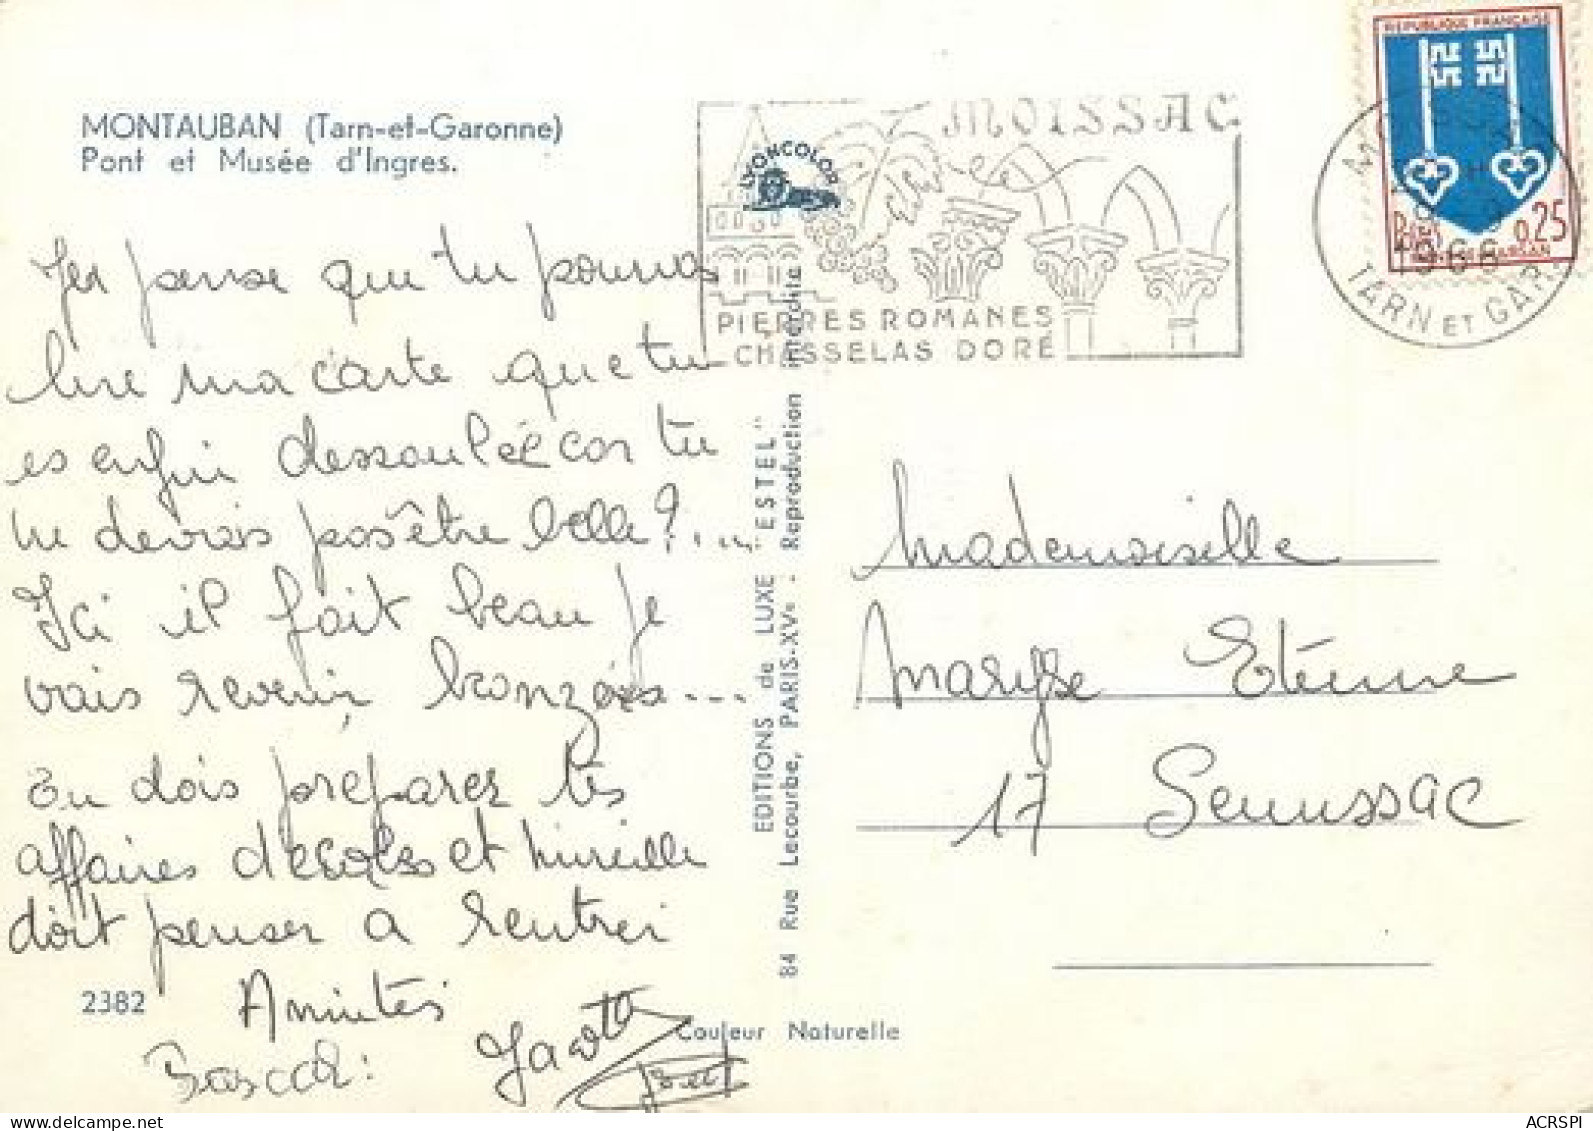 MONTAUBAN (Tarn-et-Garonne)
Pont et Musée d'Ingres.
pense que tu pourras
lire ma carte que tu
es enfin dessoulée car tu
ne devrais pas être belle?....
Ici il fait beau je
vais revenir, bronzée...
Tu dois préparer tes
affaires d'écoles et Mireille
doit penser a rentrer
Amitiés
2382
EDITIONS de LUXE "ESTEL"
84 Rue Lecourbe, PARIS-XVe - Reproduction interdite
Couleur Naturelle
LYONCOLOR
MOISSAC
PIERRES ROMANES
CHASSELAS DORÉ
REPUBLIQUE FRANÇAISE
0,25
1966
TARN ET GAR
Mademoiselle
Maryse Etienne
17 Semussac
ACRSPI